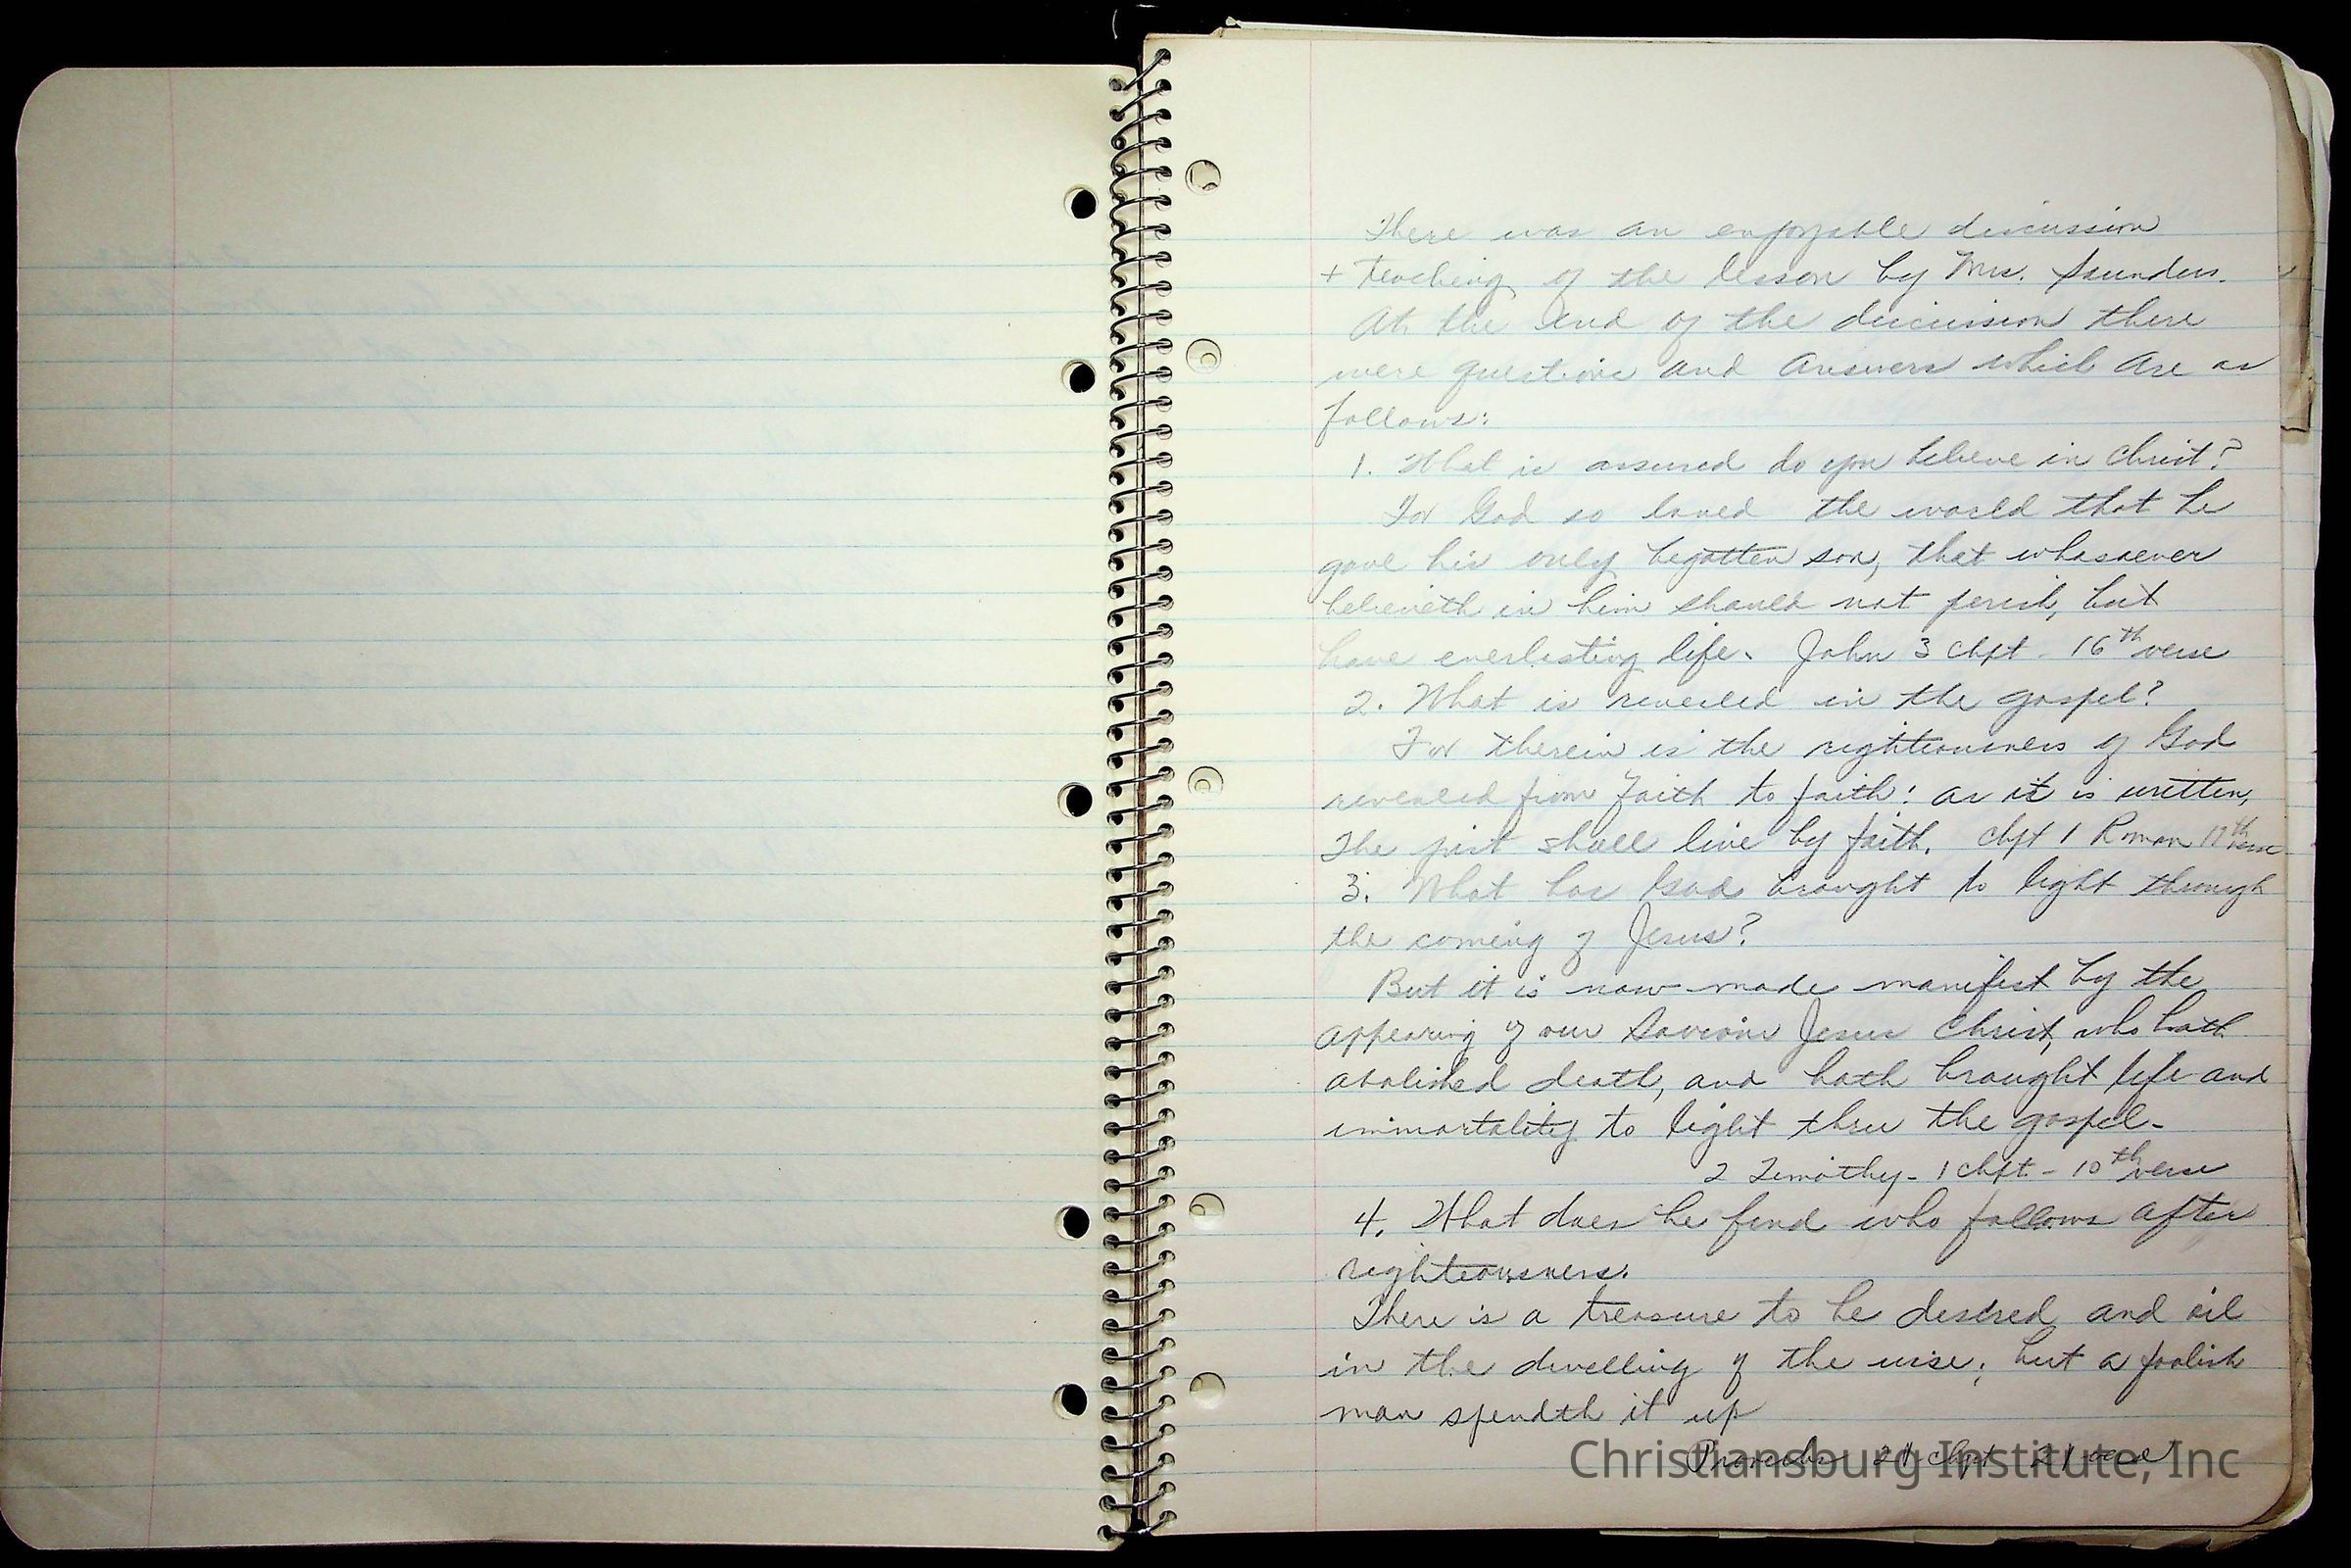 There was an enjoyable discussion
+ teaching of the lesson by Mrs. Saunders.
At the end of the discussion there
were questions and answers which are as
follows:
1. What is assured do you believe in Christ?
For God so loved the world that he
gave his only begotten son, that whosoever
believeth in him should not perish, but
have everlasting life. John 3 chpt - 16th verse
2. What is revealed in the gospel?
For therein is the righteousness of God
revealed from faith to faith: as it is written,
The just shall live by faith. chpt 1 Roman 17th verse
3. What has God brought to light through
the coming of Jesus?
But it is now made manifest by the
appearing of our Saviour Jesus Christ, who hath
abolished death, and hath brought life and
immortality to light thru the gospel.
2 Timothy - 1 chpt - 10th verse
4. What does he find who follows after
righteousness.
There is a treasure to be desired and oil
in the dwelling of the wise; but a foolish
man spendth it up
Proverbs 21 chpt 21 verse
Christiansburg Institute, Inc